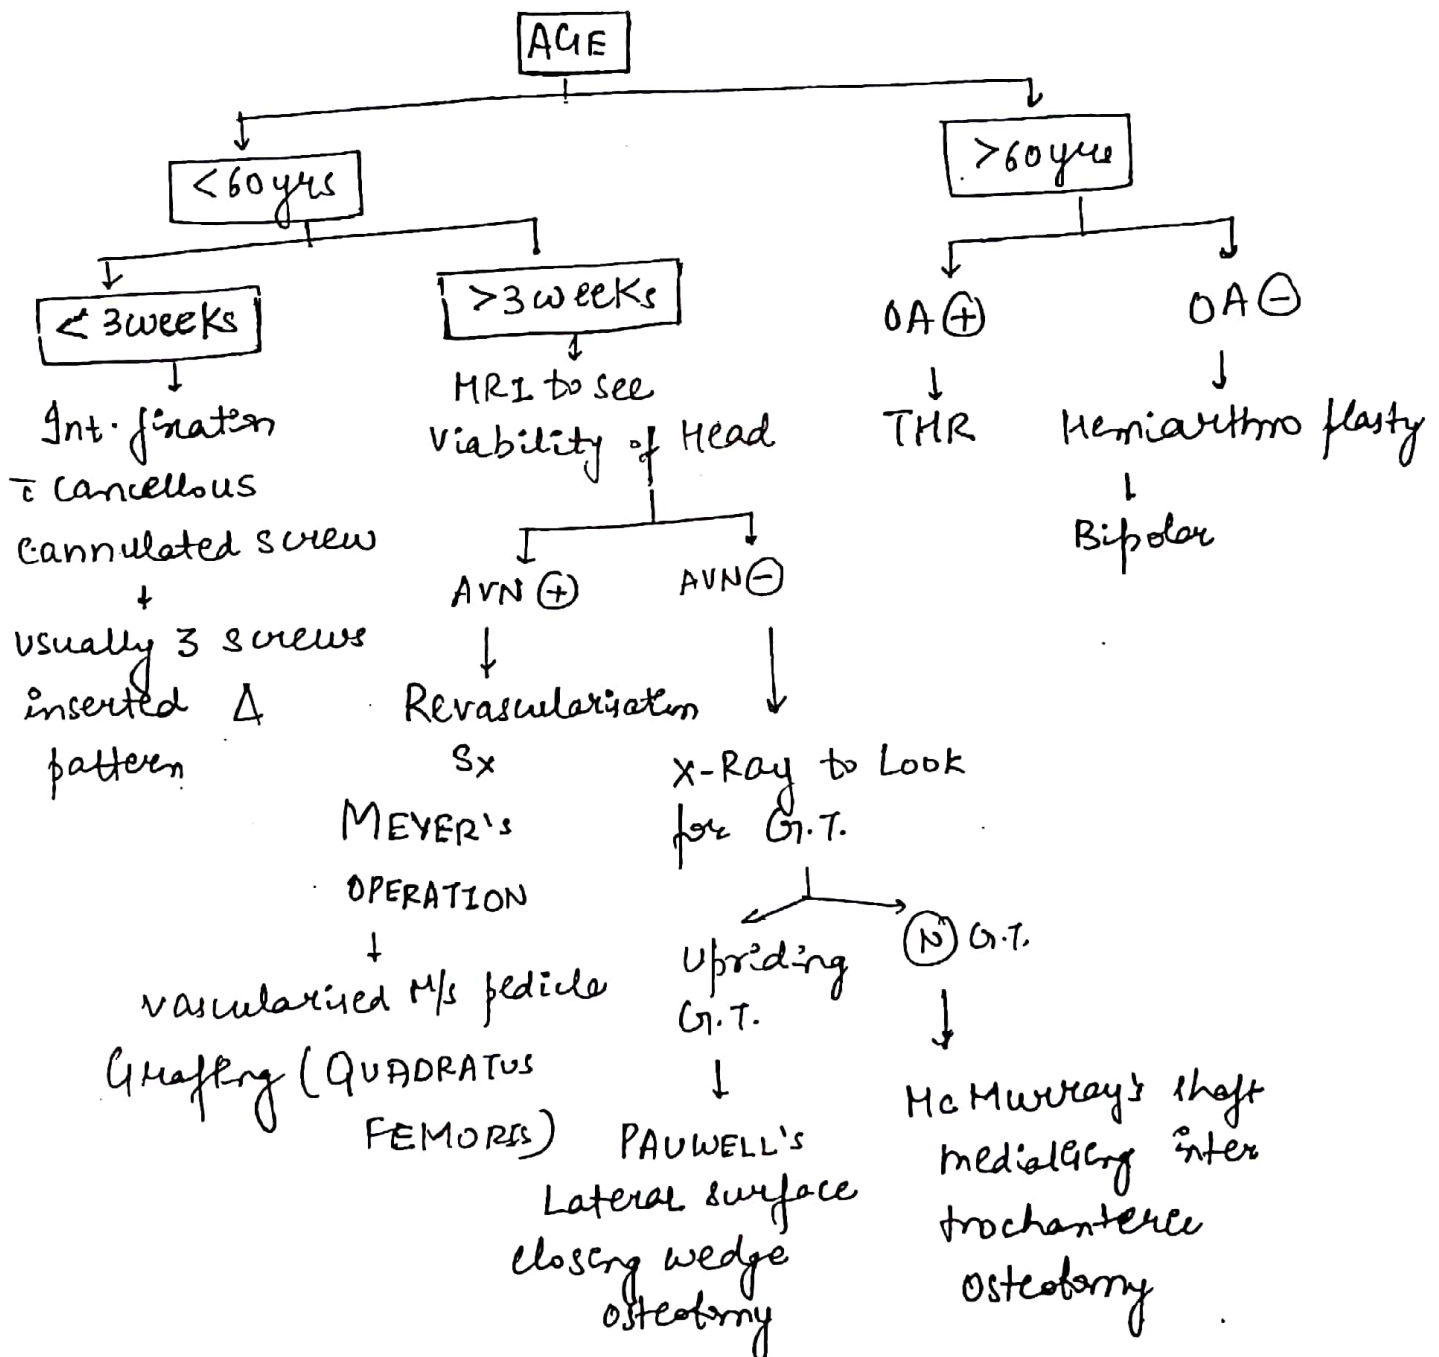 AGE
<60yrs
>60yrs
<3weeks
>3weeks
OA⊕
OA⊖
Int. fixation
c̄ cancellous
cannulated screw
usually 3 screws
inserted Δ
pattern
MRI to see
viability of Head
AVN⊕
AVN⊖
Revascularisation
Sx
MEYER'S
OPERATION
vascularised M/s pedicle
Grafting (QUADRATUS
FEMORIS)
X-Ray to Look
for G.T.
Upriding
G.T.
PAUWELL'S
Lateral surface
closing wedge
osteotomy
Ⓝ G.T.
McMurray's shaft
medialising inter
trochanteric
osteotomy
THR
Hemiarthroplasty
Bipolar